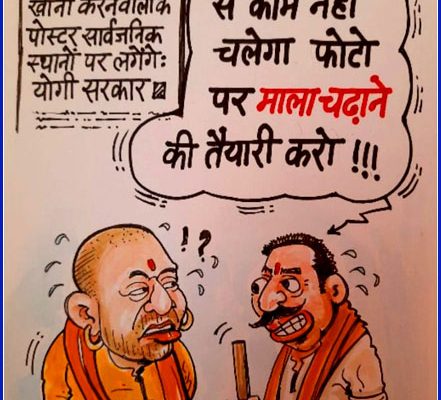 पोस्टर सार्वजनिक
स्थानों पर लगेंगे:
योगी सरकार
से काम नहीं
चलेगा फोटो
पर माला चढ़ाने
की तैयारी करो !!!
!?